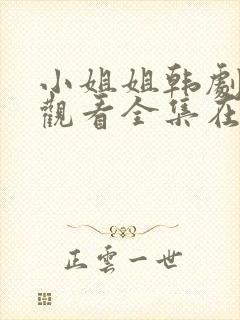 小姐姐韩劇
觀看全集在
正雲一世